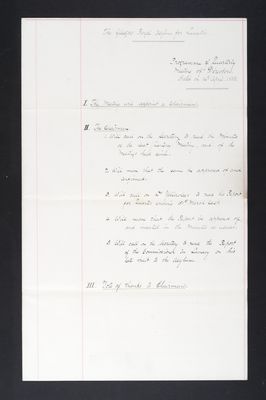 The Glasgow Royal Asylum for Lunatics
Programme of Quarterly
Meeting of Directors
held on April
I. The Meeting will appoint a Chairman
II. The Chairman
1. Will call on the Secretary to read the Minutes
of the last Quarterly Meeting, and of the
Meetings held since.
2. Will move that the same be approved of and
confirmed.
3. Will call on Dr Yellowlees to read his Report
for Quarter ending 31st March last.
4. Will move that the Report be approved of,
and inserted in the Minutes as usual.
5. Will call on the Secretary to read the Report
of the Commissioners in Lunacy on his
last visit to the Asylum.
III. Vote of thanks to Chairman.